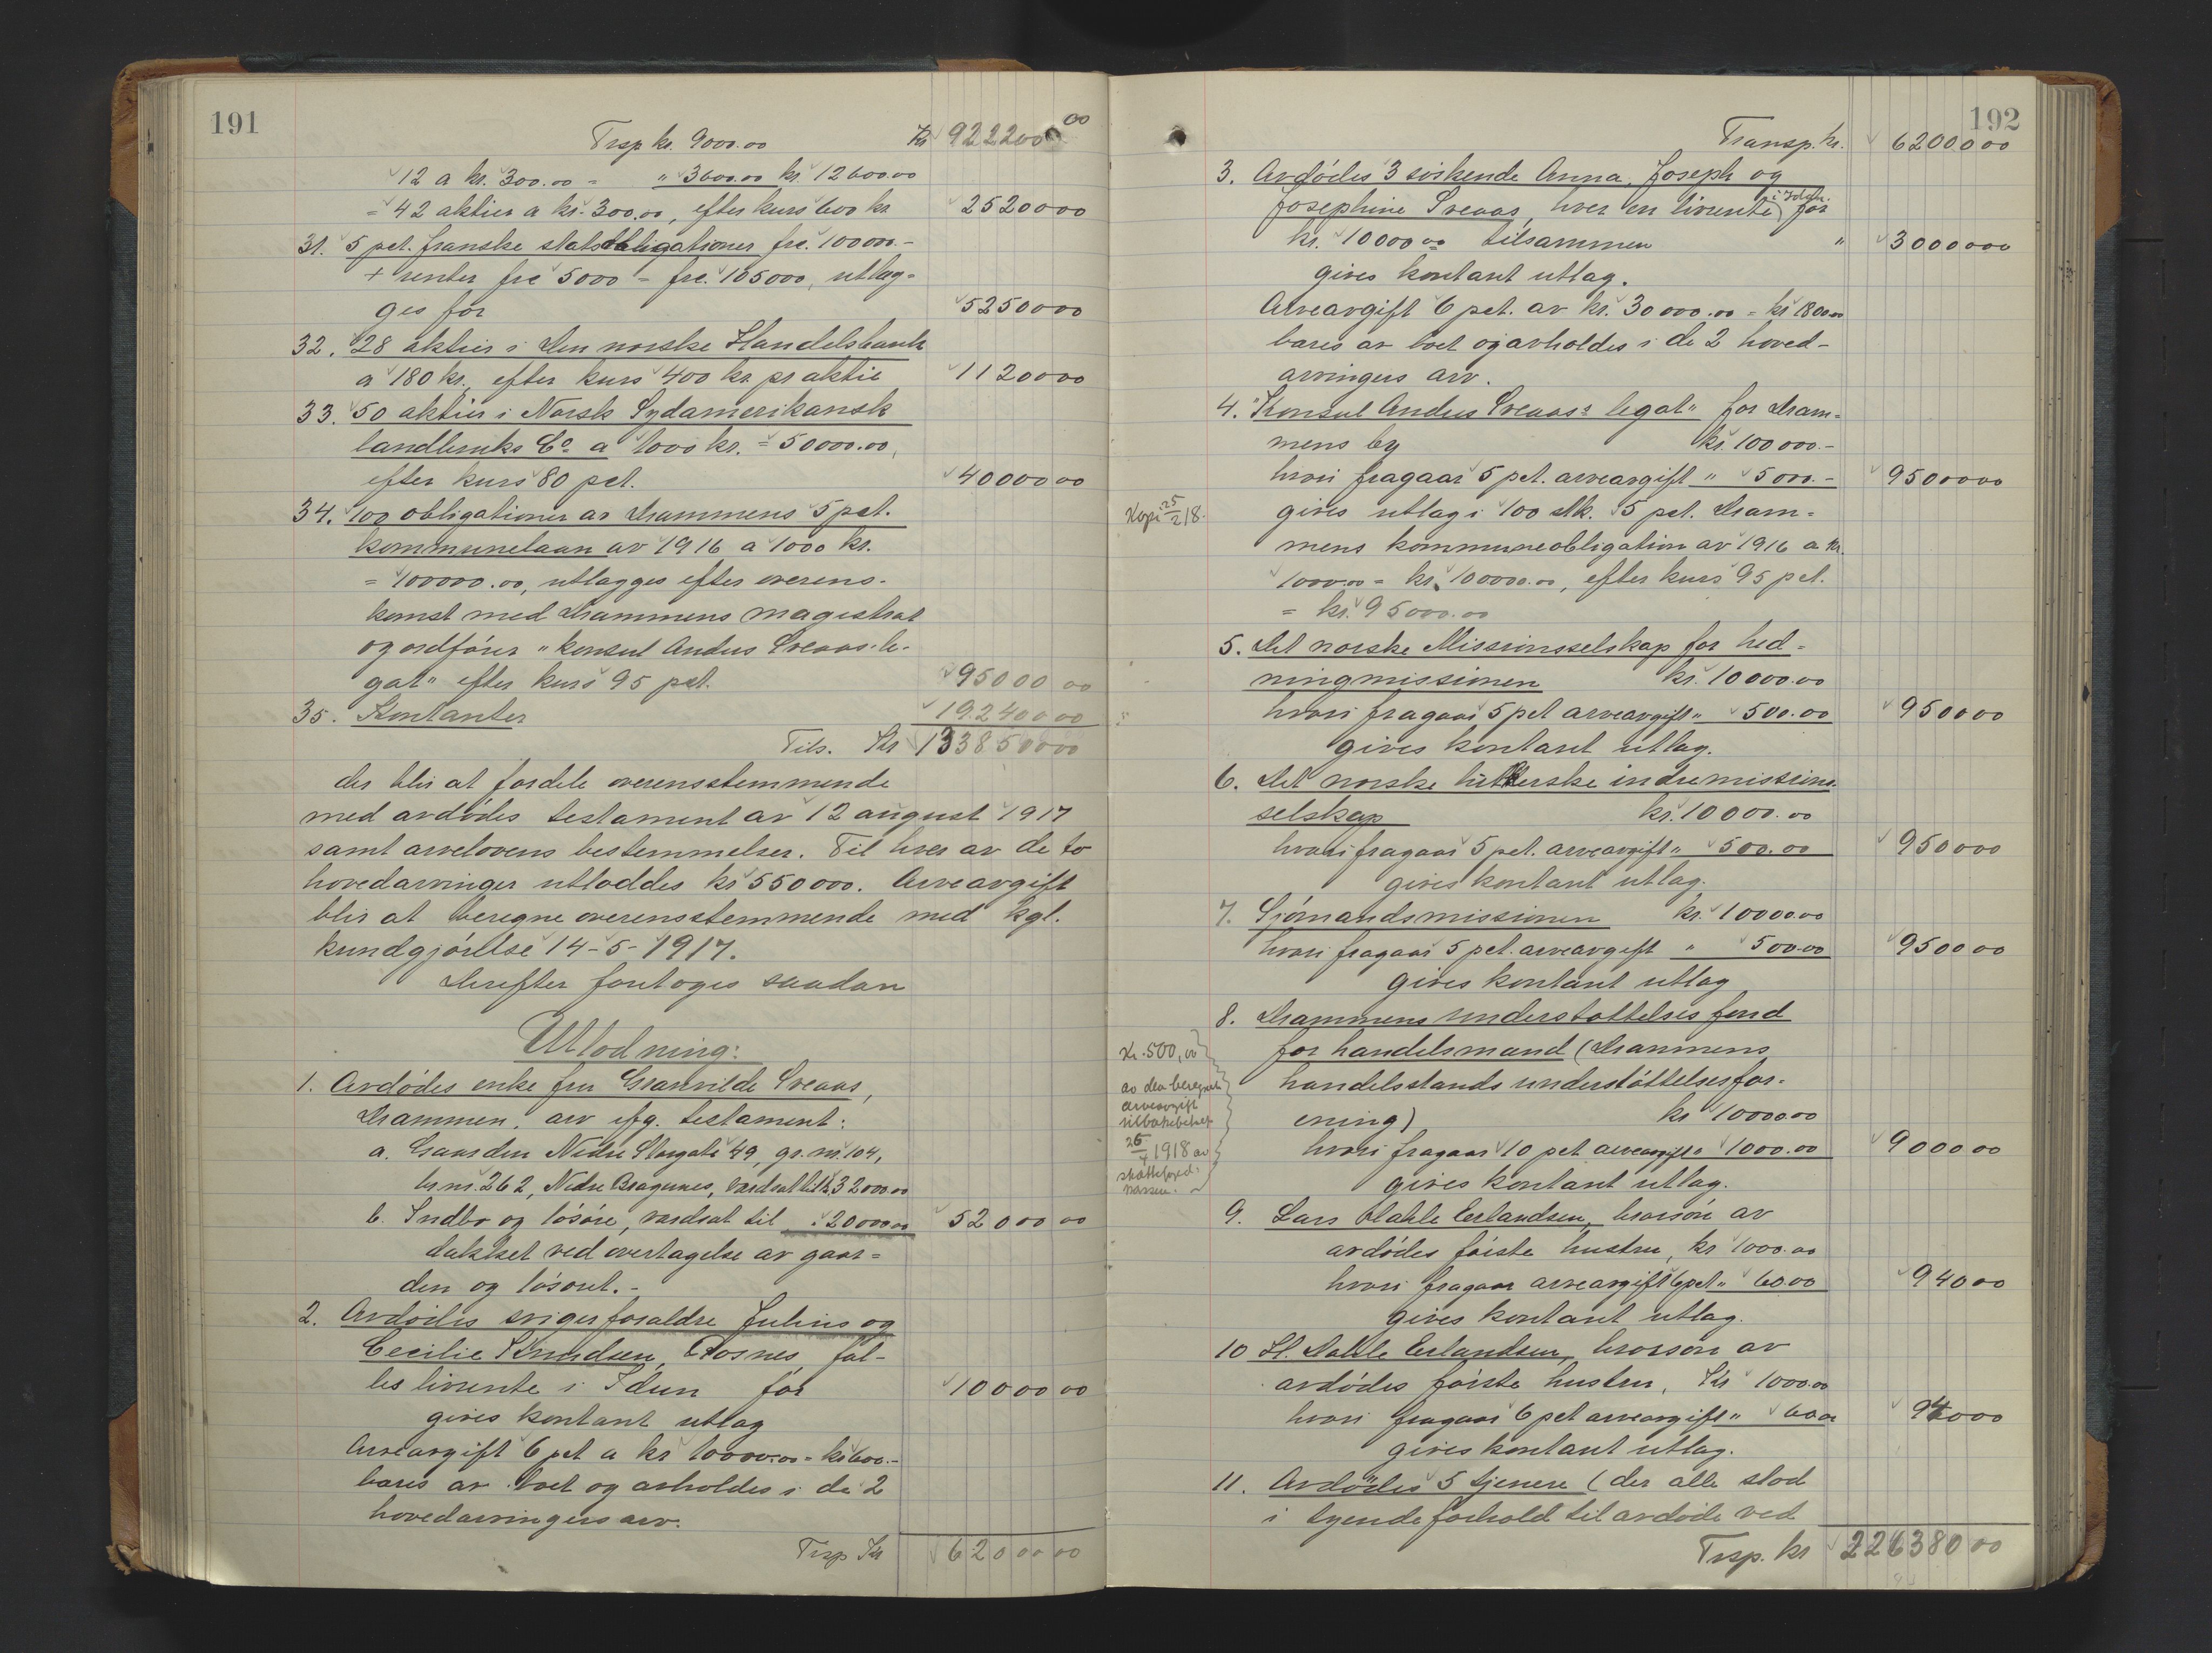 191
Trsp kr. 9000.00 Kr 922200 00
12 a kr. 300.00 = " 3600.00 kr. 12600.00
= 42 aktier a kr. 300.00, efter kurs 600 kr 25200 00
31. 5 pct. franske statsobligationer frc. 100000.-
+ renter frc 5000 = frc. 105000, utlæg-
ges for 52500 00
32. 28 aktier i Den norske Handelsbank
a 180 kr., efter kurs 400 kr. pr aktie 11200 00
33. 50 aktier i Norsk Sydamerikansk
landbruks Co. a 1000 kr. = 50000.00,
efter kurs 80 pct. 40000 00
34. 100 obligationer av Drammens 5 pct.
kommunelaan av 1916 a 1000 kr.
= 100000.00, utlægges efter overens-
komst med Drammens magistrat
og ordfører "konsul Anders Sveaas le-
gat" efter kurs 95 pct. 95000 00
35. Kontanter 192400 00
Tils. Kr 1338500 00
der blir at fordele overensstemmende
med avdødes testament av 12 august 1917
samt arvelovens bestemmelser. Til hver av de to
hovedarvinger utloddes kr 550000. Arveavgift
blir at beregne overensstemmende med kgl.
kundgjørelse 14-5-1917.
Derefter foretoges saadan
Utlodning:
1. Avdødes enke fru Granvilde Sveaas,
Drammen, arv ifg. testament:
a. Gaarden Nedre Storgate 49, gr. nr. 104,
br. nr. 262, Nedre Bragernes, værdsat til kr. 32000.00
b. Indbo og løsøre, værdsat til " 20000.00 52000 00
dækket ved overtagelse av gaar-
den og løsøret.-
2. Avdødes svigerforældre Julius og
Cecilie Knudsen, Rosnes, fæl-
les livrente i Idun for 10000 00
gives kontant utlæg
Arveavgift 6 pct a kr 10000.00 = kr 600.-
bæres av boet og avholdes i de 2
hovedarvingers arv.
Trsp Kr 62000 00
192
Transp. kr. 62000 00
3. Avdødes 3 søskende Anna, Joseph og
Josephine Sveaas, hver en livrente i Idun for
kr. 10000.00 tilsammen " 30000 00
gives kontant utlæg.
Arveavgift 6 pct. av kr. 30000.00 = kr 1800.00
bæres av boet og avholdes i de 2 hoved-
arvingers arv.
4. "Konsul Anders Sveaas's legat" for Dram-
mens by kr. 100000.-
hvori fragaar 5 pct. arveavgift " 5000.- 95000 00
Kopi 25/2 18.
gives utlæg i 100 stk. 5 pct. Dram-
mens kommuneobligation av 1916 a kr.
1000.00 = kr. 100000.00, efter kurs 95 pct.
= kr. 95000.00
5. Det norske Missionsselskap for hed-
ningmissionen kr. 10000.00
hvori fragaar 5 pct arveavgift " 500.00 9500 00
gives kontant utlæg.
6. Det norske lutherske indremissions-
selskap kr. 10000.00
hvori fragaar 5 pct. arveavgift " 500.00 9500 00
gives kontant utlæg.
7. Sjømandsmissionen kr. 10000.00
hvori fragaar 5 pct. arveavgift " 500.00 9500 00
gives kontant utlæg
8. Drammens understøttelses fond
for handelsmænd (Drammens
handelsstands understøttelsesfor-
ening) kr 10000.00
hvori fragaar 10 pct arveavgift " 1000.00 9000 00
gives kontant utlæg.
Kr. 500,00
av den beregnede
arveavgift
tilbakebetalt
26/4 1918 av
skattefogd-
kassen.
9. Lars Dahle Erlandsen, brorsøn av
avdødes første hustru, kr 1000.00
hvori fragaar arveavgift 6 pct " 60.00 940 00
gives kontant utlæg.
10 H. Dahle Erlandsen, brorsøn av
avdødes første hustru, Kr 1000.00
hvori fragaar 6 pct arveavgift " 60.00 940 00
gives kontant utlæg.
11. Avdødes 5 tjenere (der alle stod
i tyendeforhold til avdøde ved
Trsp. kr 226380 00